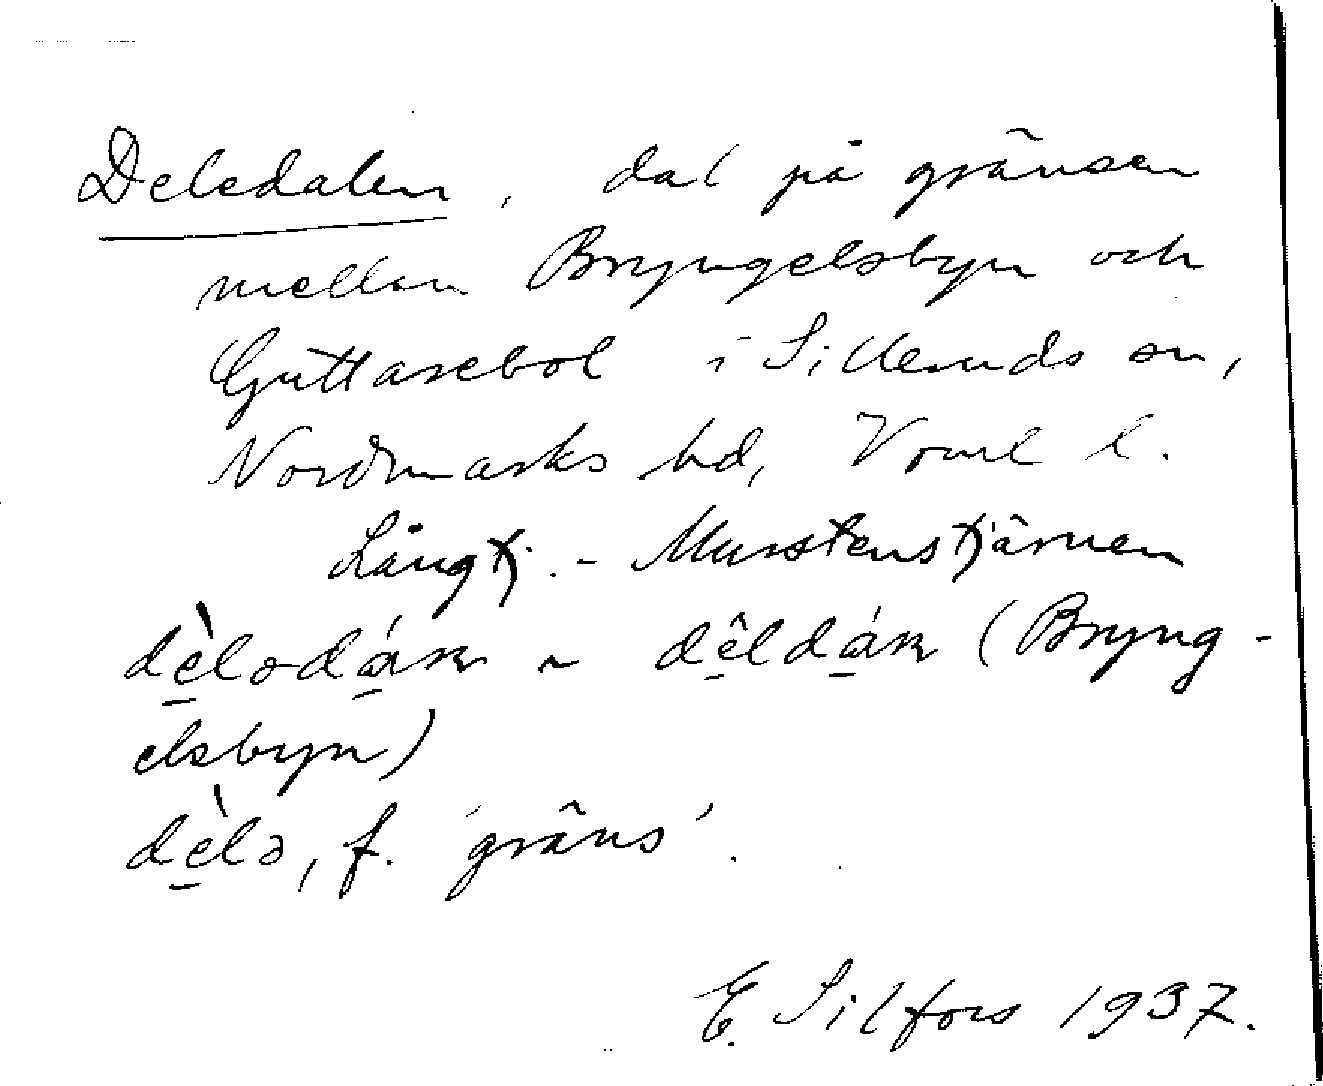 Deledalen, dal på gränsen
mellan Bryngelsbyn och
Guttarebol i Silleruds sn,
Nordmarks hd, Vrml l.
Långtj. - Murstenstjärnen
dè̱lədá̱n ~ dê̱ldá̱n (Bryng-
elsbyn)
dè̱lə, f. 'gräns'.
E. Silfors 1937.